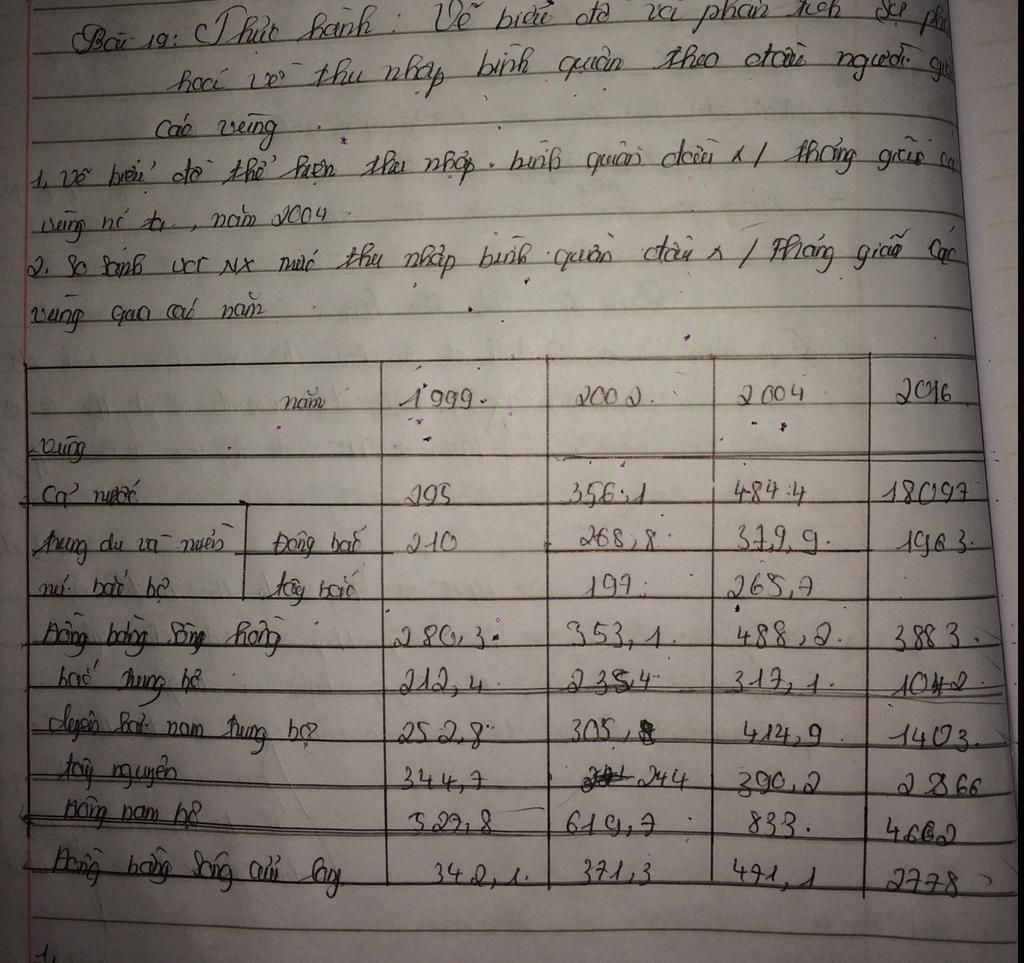 Bài 19: Thực hành: Vẽ biểu đồ và phân tích sự phân
hoá về thu nhập bình quân theo đầu người giữa
các vùng
1, Vẽ biểu đồ thể hiện thu nhập bình quân đầu x / tháng giữa các
vùng nc ta, năm 2004
2. So sánh và NX mức thu nhập bình quân đầu x / tháng giữa các
vùng qua các năm
năm 1999 2002 2004 2016
Vùng
Cả nước 295 356,1 484,4 18097
trung du và miền Đông bắc 210 268,8 379,9 1963
núi bắc bộ tây bắc 197 265,7
Đồng bằng sông hồng 280,3 353,1 488,2 3883
bắc trung bộ 212,4 235,4 317,1 1042
duyên hải nam trung bộ 252,8 305,8 414,9 1403
tây nguyên 344,7 244 390,2 2866
Đông nam bộ 527,8 619,7 833 4662
Đồng bằng sông cửu long 342,1 371,3 471,1 2778
1,